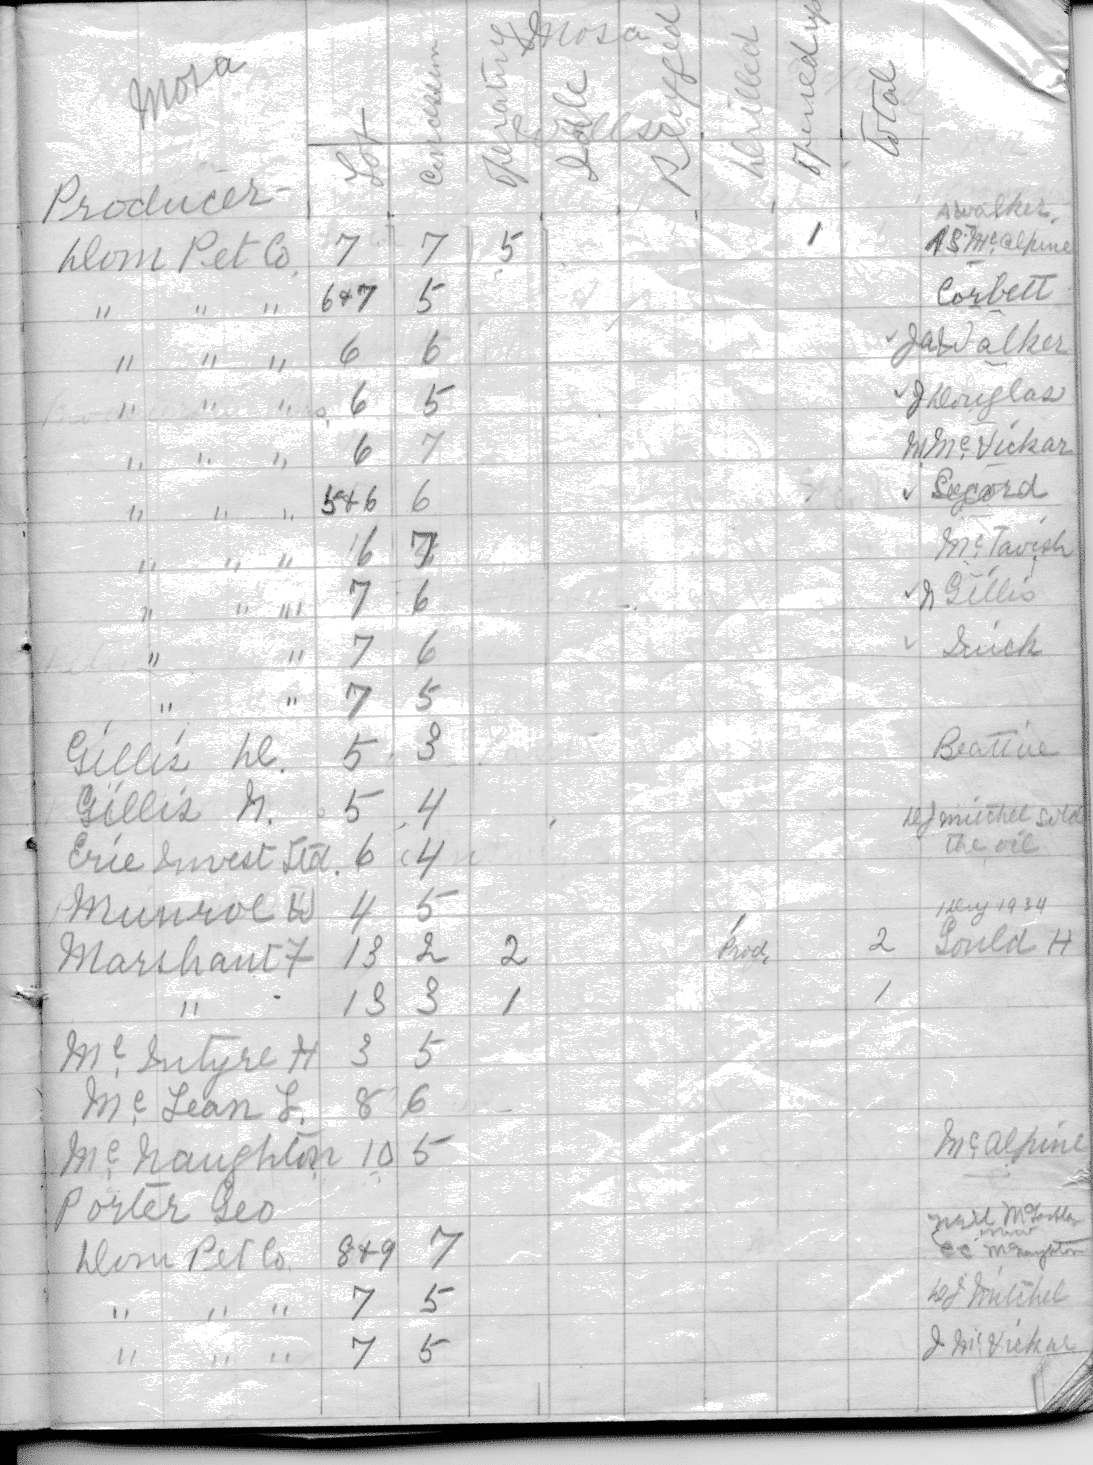 Mosa
Mosa
Wells
Producer Lot Concession Operating Idle Plugged Drilled Opened up Total
A Walker
Dom Pet Co. 7 7 5 1 McAlpine
" " " 6&7 5 Corbett
" " " 6 6 ✓ Walker
" " " 6 5 ✓ J Douglas
" " " 6 7 McVickar
" " " 5&6 6 ✓ Secord
" " " 6 7 McTavish
" " " 7 6 ✓ N Gillis
" " 7 6 ✓
" " 7 5
Gillis D. 5 3 Beattie
Gillis N. 5 4
D J Mitchel sold
Erie Invest Ltd. 6 4 the oil
Munroe D 4 5
1934
Marshant F 13 2 2 Prod. 2 Gould H
" 13 3 1 1
Mc Intyre H 3 5
Mc Lean L. 8 6
Mc Naughton 10 5 McAlpine
Porter Geo
Neil
Dom Pet Co. 8&9 7 McNaughton
" " " 7 5 D J Mitchel
" " " 7 5 J McVickar